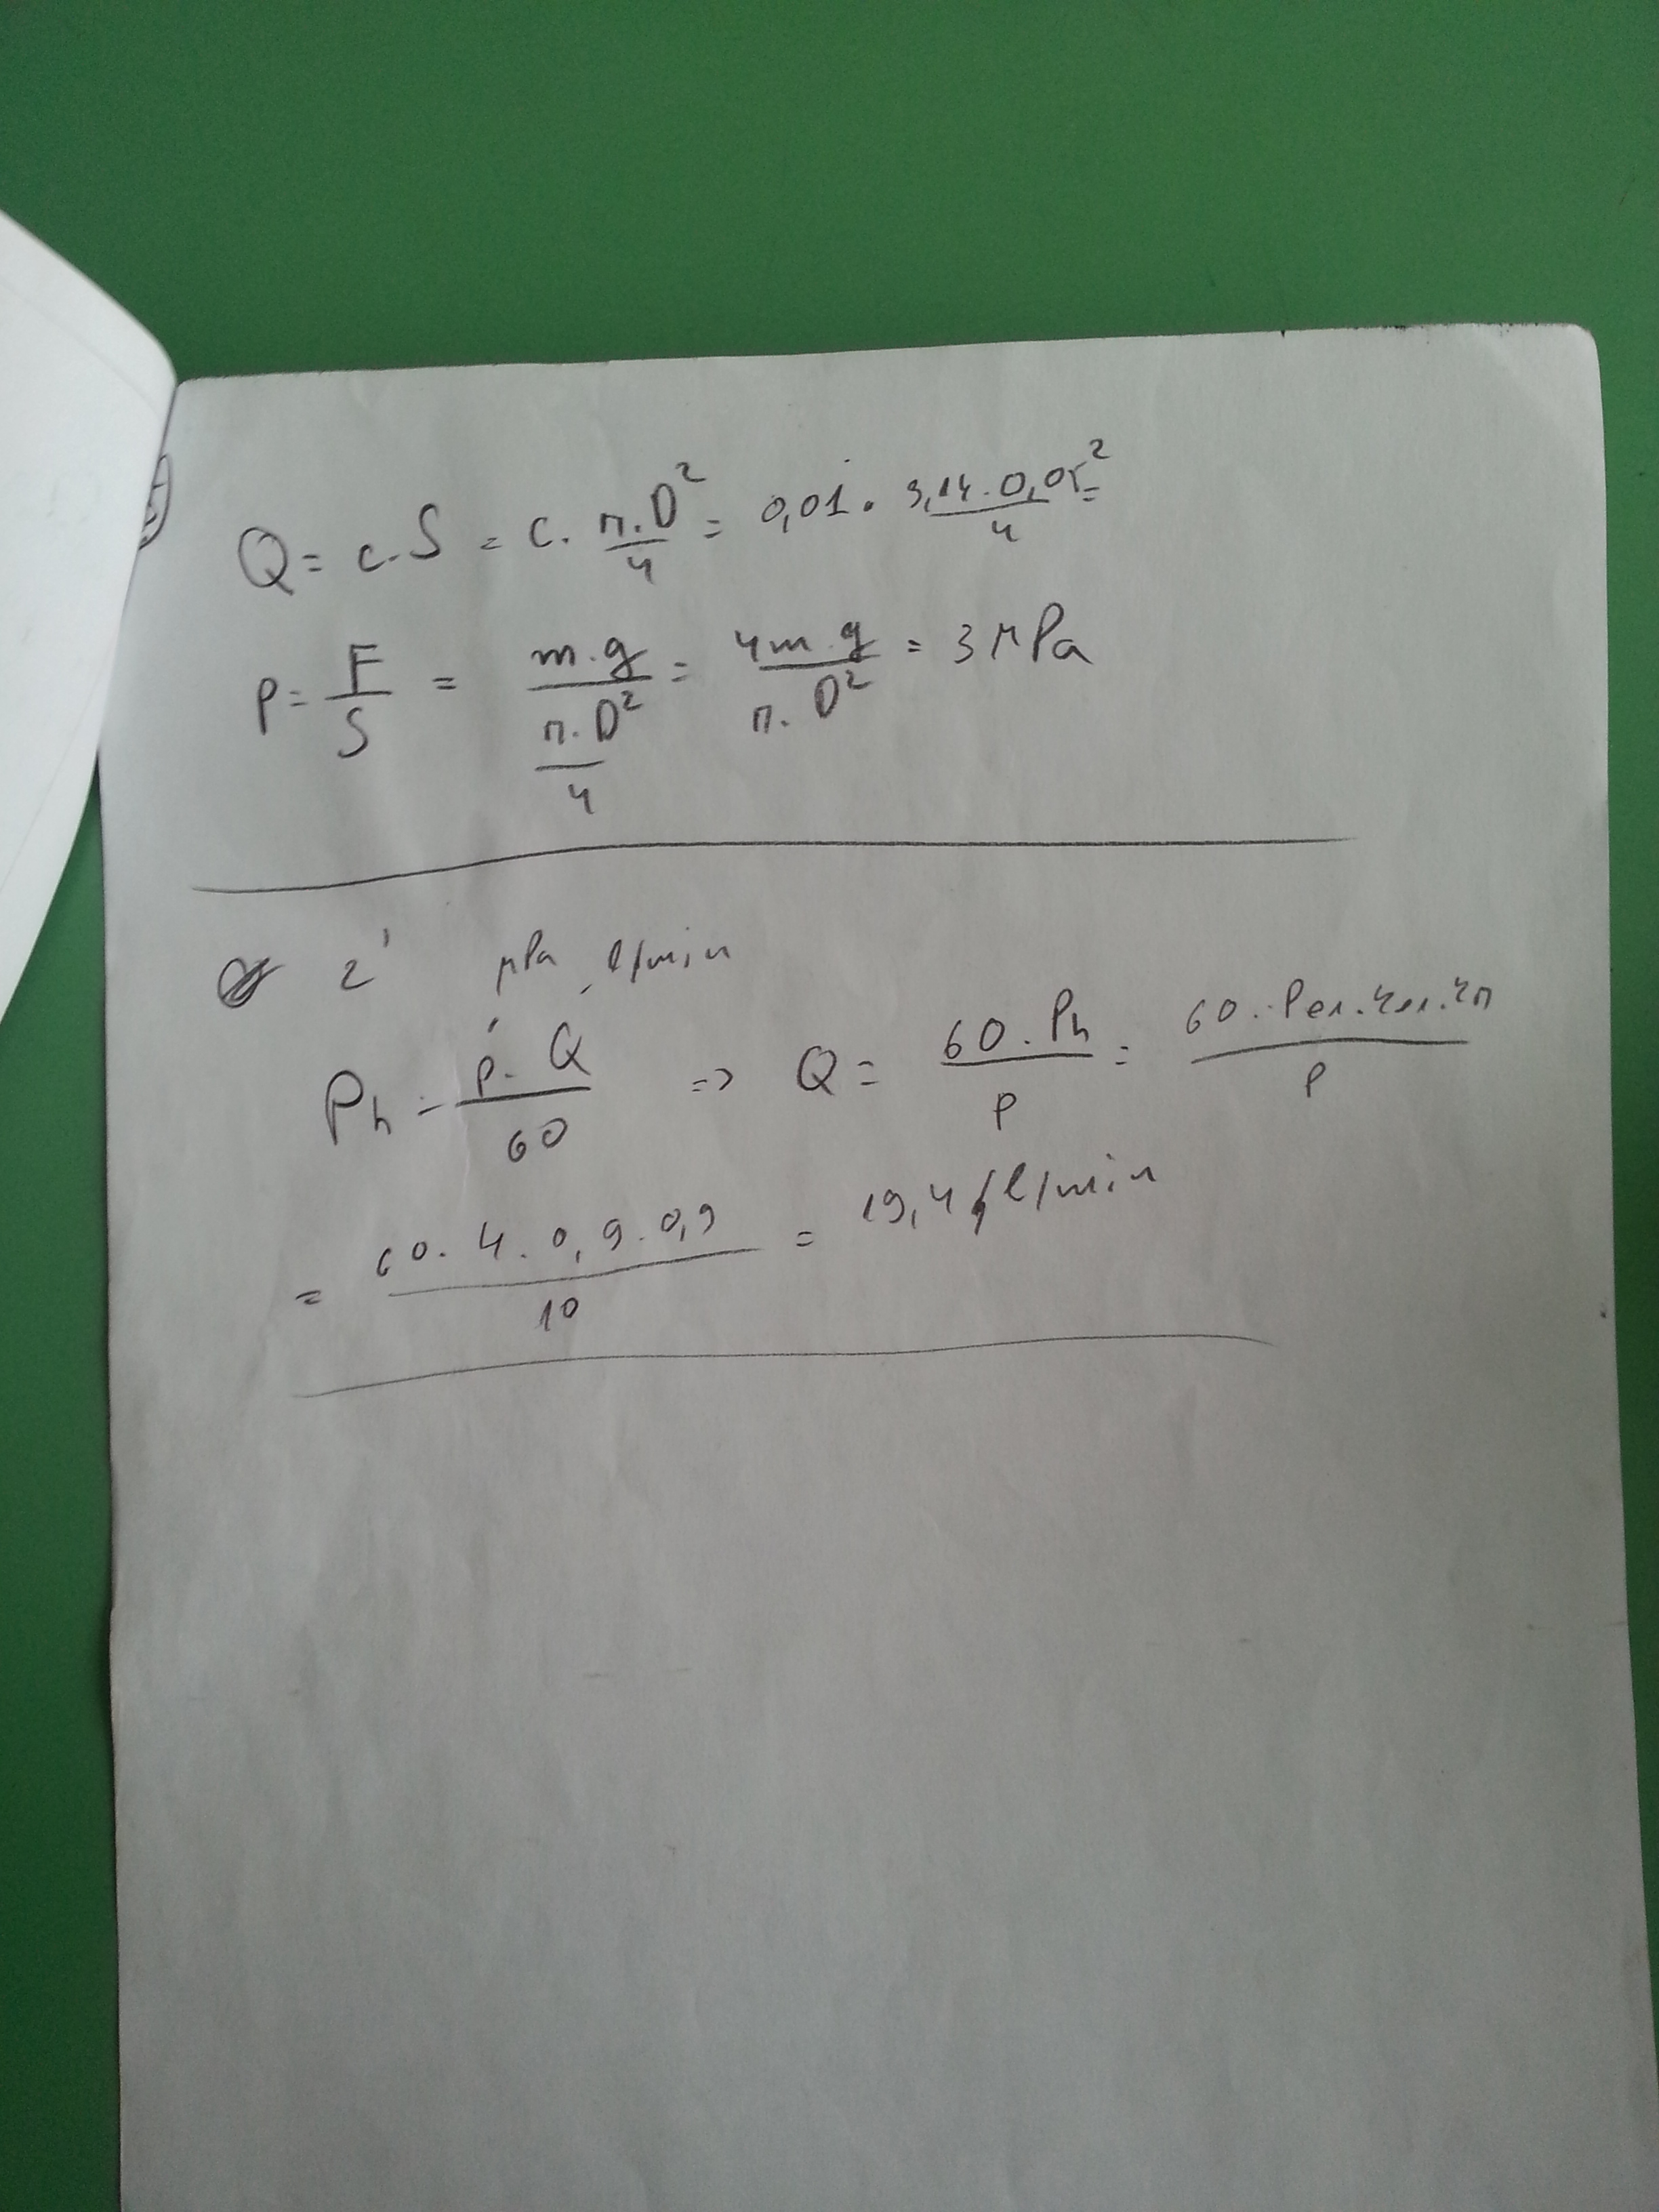 Q = c.S = c. п.D²/4 = 0,01. 3,14.0,05²/4 =
p = F/S = m.g/(п.D²/4) = 4m.g/п.D² = 3 MPa
2'   MPa, l/min
Ph = p.Q/60 => Q = 60.Ph/p = 60.Pел.ηел.ηп/p
= 60.4.0,9.0,9/10 = 19,4 l/min